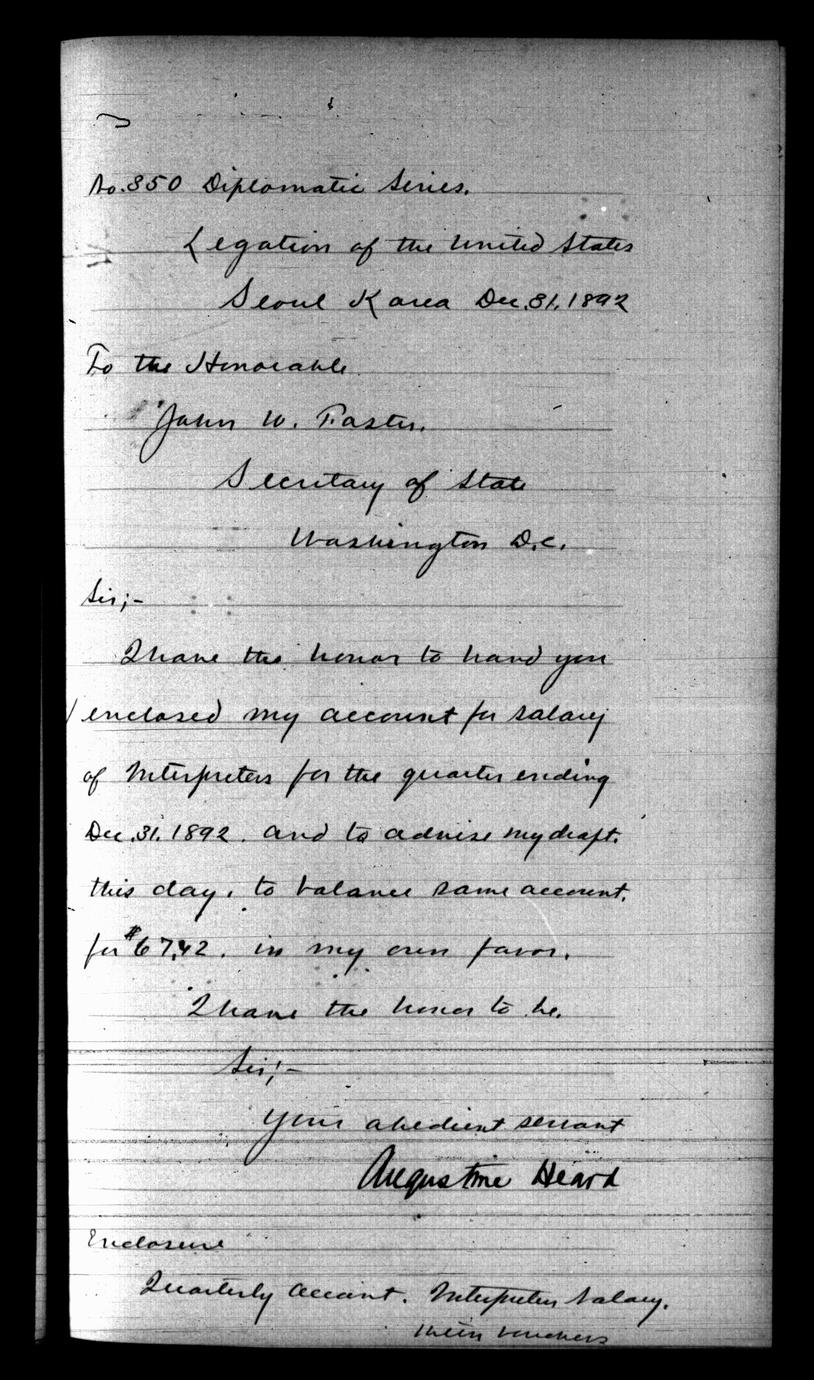 No. 350 Diplomatic Series.
Legation of the United States
Seoul Korea Dec. 31, 1892
To the Honorable
John W. Foster.
Secretary of State
Washington D.C.
Sir;-
I have the honor to hand you
enclosed my account for salary
of Interpreters for the quarter ending
Dec. 31. 1892. and to advise my draft.
this day, to balance same account.
for $67.42. in my own favor.
I have the honor to be.
Sir;-
Your obedient servant
Augustine Heard
Enclosure
Quarterly Account. Interpreters Salary.
with vouchers